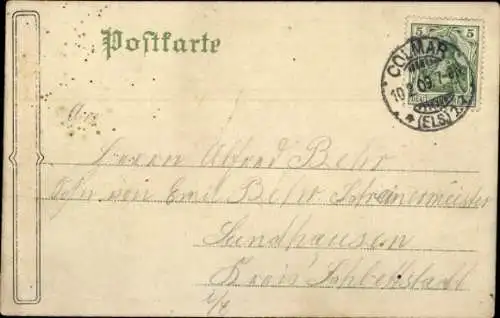 Postkarte
5 5
COLMAR
10.2.09.7-8N
* * (ELS) 1 *
An
Herrn Alfred Behr
Sohn von Emil Behr Schreinermeister
Sundhausen
Kreis Schlettstadt
i/E